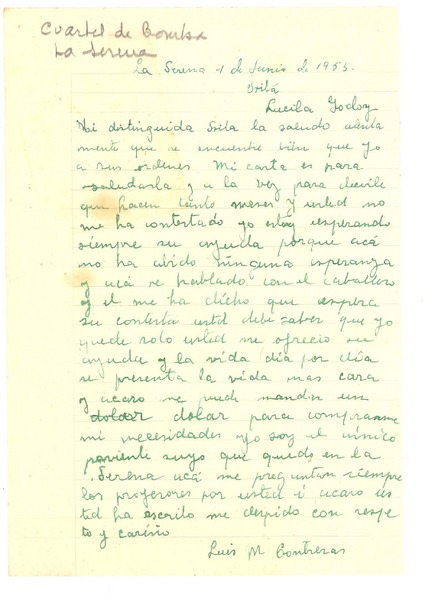 Cuartel de Bomba
La Serena
La Serena 1 de Junio de 1955.
Sritá
Lucila Godoy
Mi distinguida Srita la saludo atenta
mente que se encuentre bien que yo
a sus ordenes. Mi carta es para
saludarla y a la vez para decirle
que hacen tanto meses y usted no
me ha contestado yo estoy esperando
siempre su ayuda porque acá
no ha abido ninguna esperanza
y acá se hablado con el caballero
y el me ha dicho que espera
su contesta usted debe saber que yo
quede solo usted me ofrecio su
ayuda y la vida dia por dia
se presenta la vida mas cara
y acaso me puede mandar un
dolar para comprarme
mi necesidades yo soy el unico
pariente suyo que queda en la
Serena acá me preguntan siempre
los profesores por usted i acaso us
ted ha escrito me despido con respe
to y cariño
Luis M Contreras